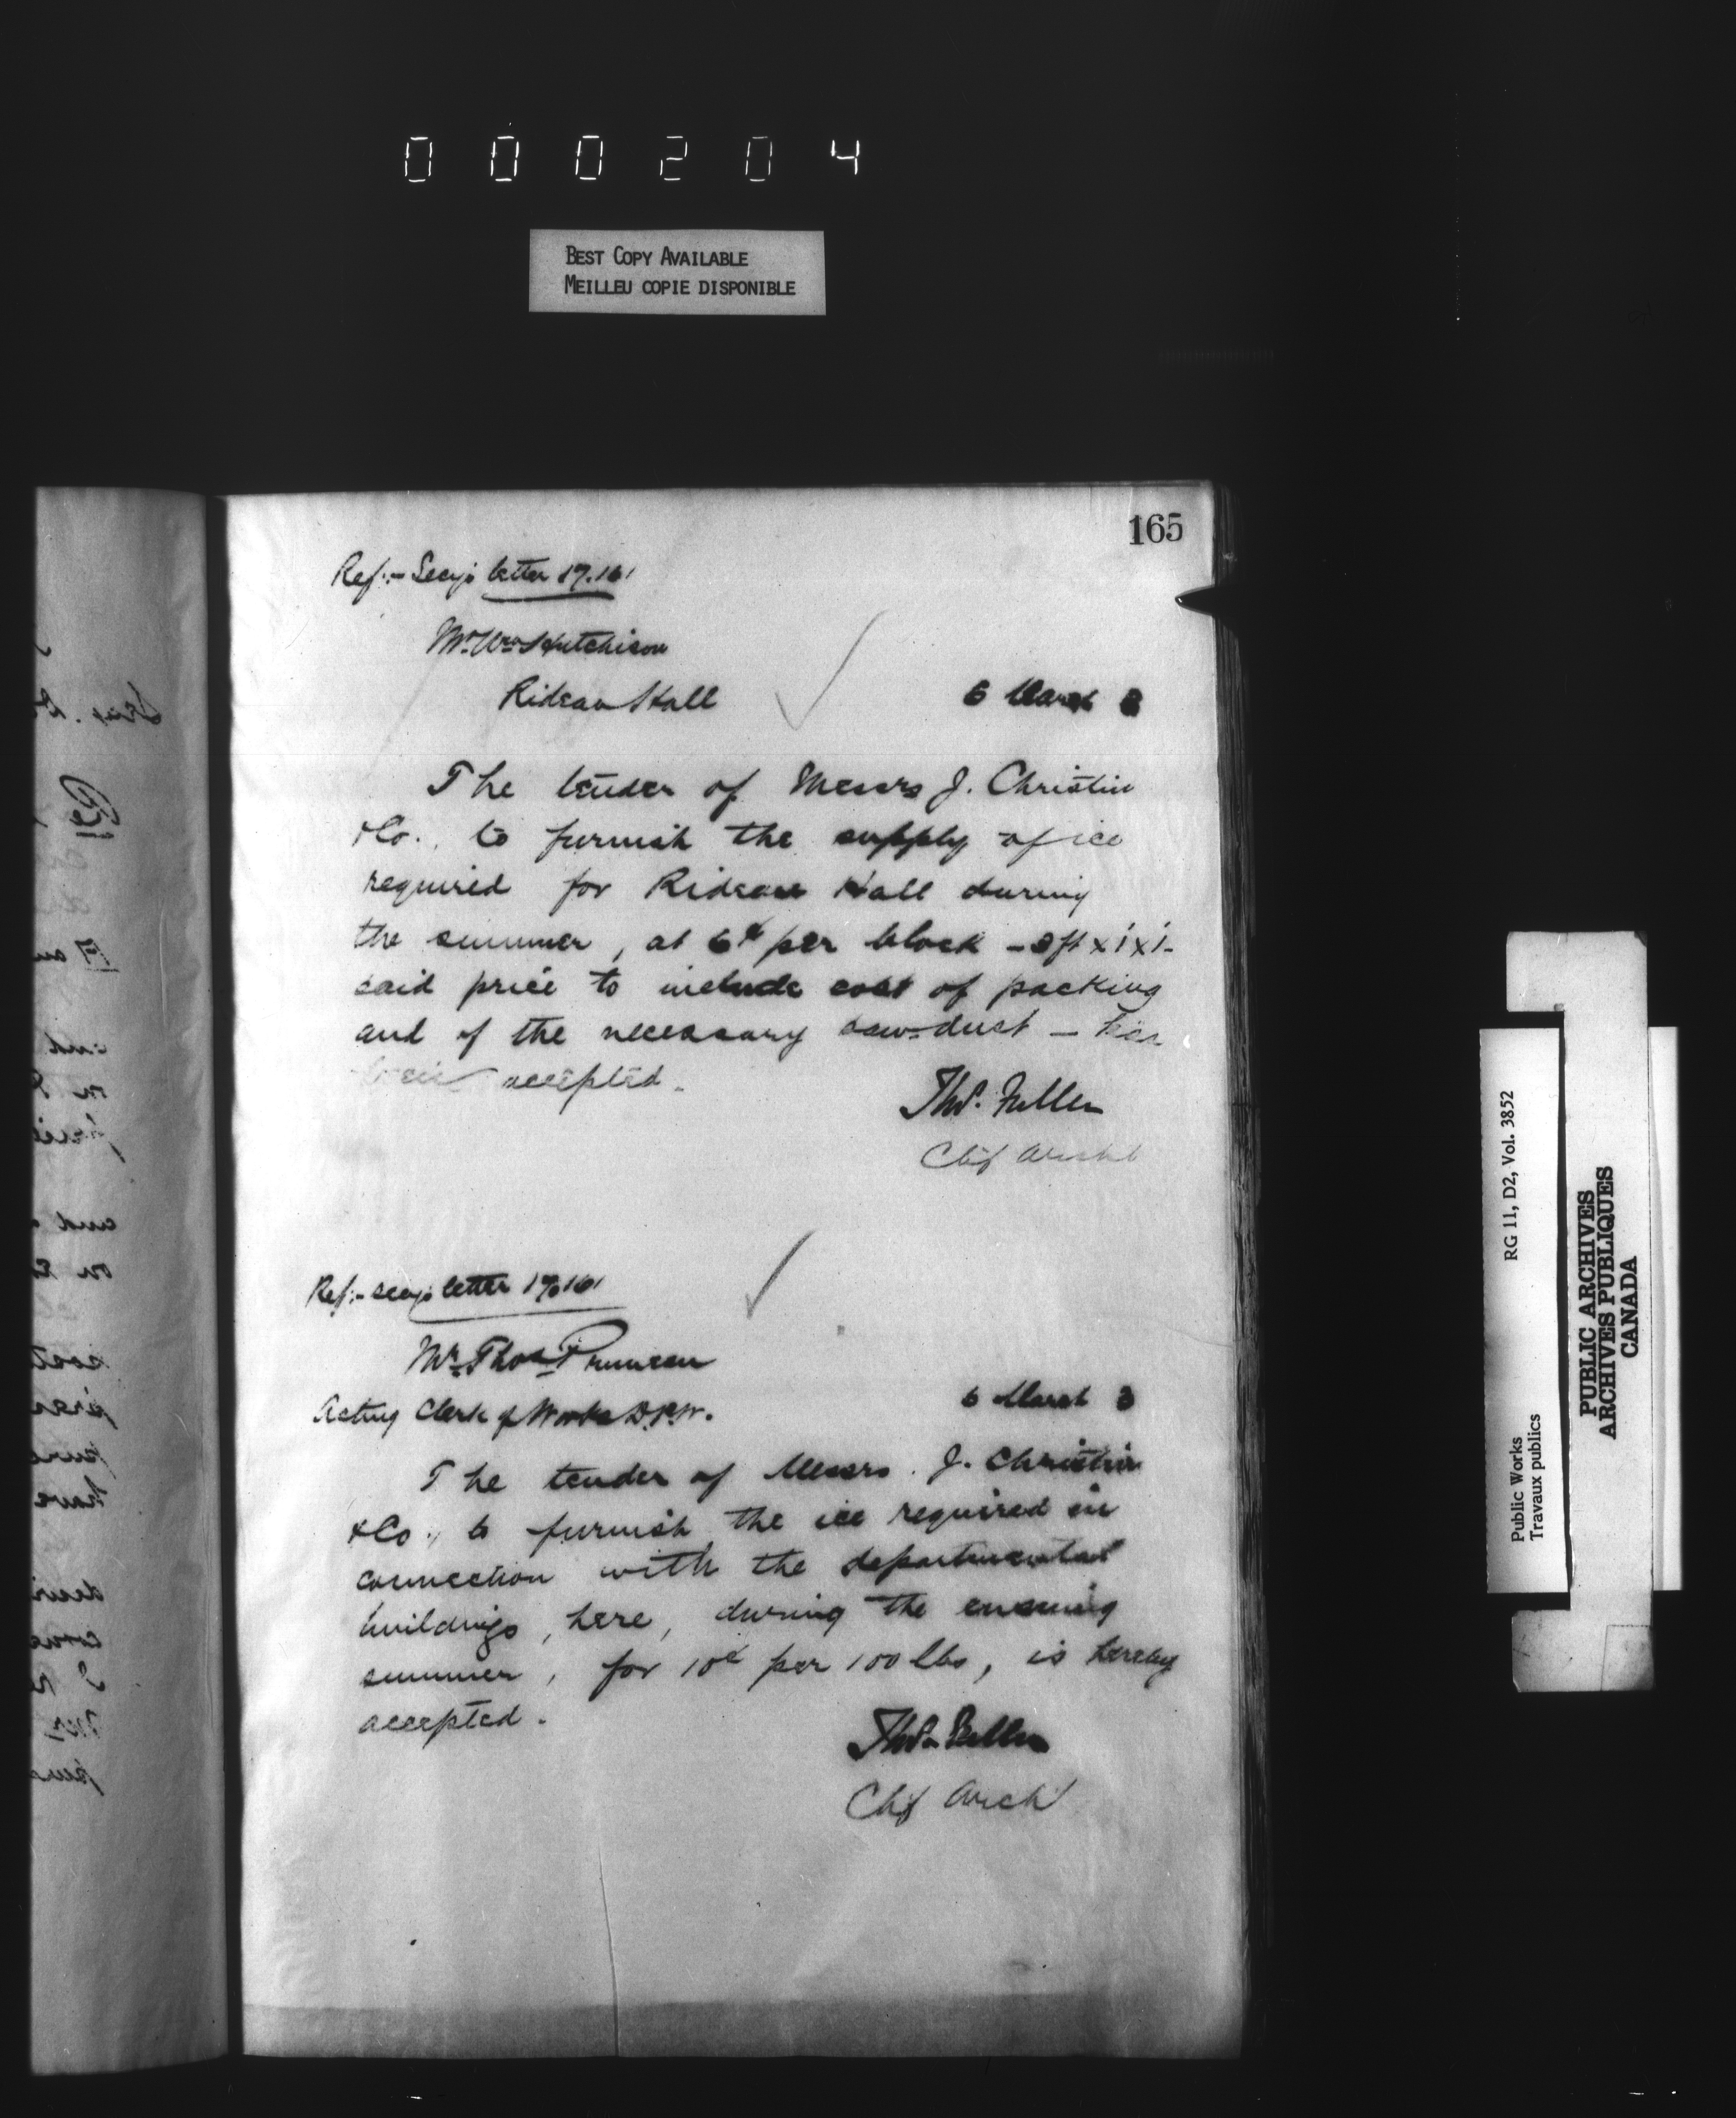 000204
BEST COPY AVAILABLE
MEILLEU COPIE DISPONIBLE
165
Ref:- Secy's letter 17.161
Mr. Wm. Hutchison
Rideau Hall
6 March 3
The tender of Messrs J. Christin
& Co., to furnish the supply of ice
required for Rideau Hall during
the summer, at 6¢ per block - 2ft x 1' x 1' -
said price to include cost of packing
and of the necessary saw-dust - has
been accepted.
Thos. Fuller
Chf Archt
Ref:- Secy's letter 17.161
Mr. Thos
Acting Clerk of Works D.P.W.
6 March 3
The tender of Messrs. J. Christin
& Co., to furnish the ice required in
connection with the departmental
buildings, here, during the ensuing
summer, for 10¢ per 100 lbs, is hereby
accepted.
Thos. Fuller
Chf Archt
RG 11, D2, Vol. 3852
Public Works
Travaux publics
PUBLIC ARCHIVES
ARCHIVES PUBLIQUES
CANADA